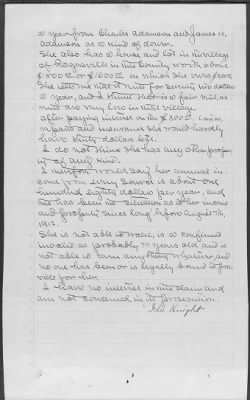 a year from Charles Adamson and James R.
Adamson as a kind of dower.
She also has a house and lot in the village
of Rogersville in this County worth about
$1000.00 or $1100.00 on which she owes $300.00.
She tells me that it rents for seventy two dollars
a year, and I think that is a fair rent, as
rents are very low in this village.
After paying interest on the $300.00, taxes,
repairs and insurance she would hardly
have thirty dollars left.
I do not think she has any other prop
erty of any kind.
I therefore would say her annual in
come from every source is about one
hundred eighty dollars per year, and
this has been the situation as to her income
and property since long before August 7th,
1912.
She is not able to work, is a confirmed
invalid as probably 74 years old and is
not able to earn anything whatever, and
no one has been or is legally bound to pro
vide for her.
I have no interest in this claim and
am not concerned in its prosecution.
Ida Knight